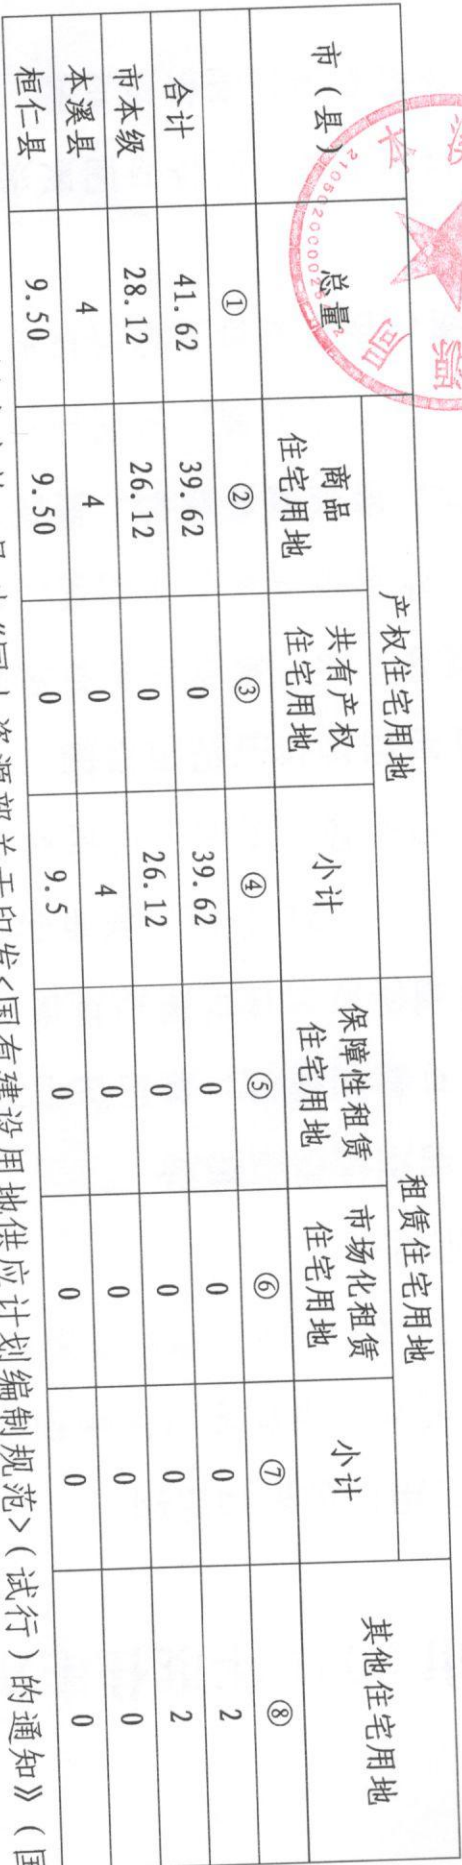 市（县） 总量 产权住宅用地 租赁住宅用地 其他住宅用地
商品住宅用地 共有产权住宅用地 小计 保障性租赁住宅用地 市场化租赁住宅用地 小计
① ② ③ ④ ⑤ ⑥ ⑦ ⑧
合计 41.62 39.62 0 39.62 0 0 0 2
市本级 28.12 26.12 0 26.12 0 0 0 2
本溪县 4 4 0 4 0 0 0 0
桓仁县 9.50 9.50 0 9.5 0 0 0 0
《国土资源部关于印发<国有建设用地供应计划编制规范>（试行）的通知》（国